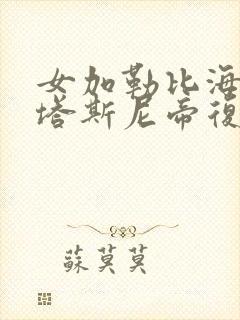 女加勒比海
塔斯尼帝復
蘇莫莫